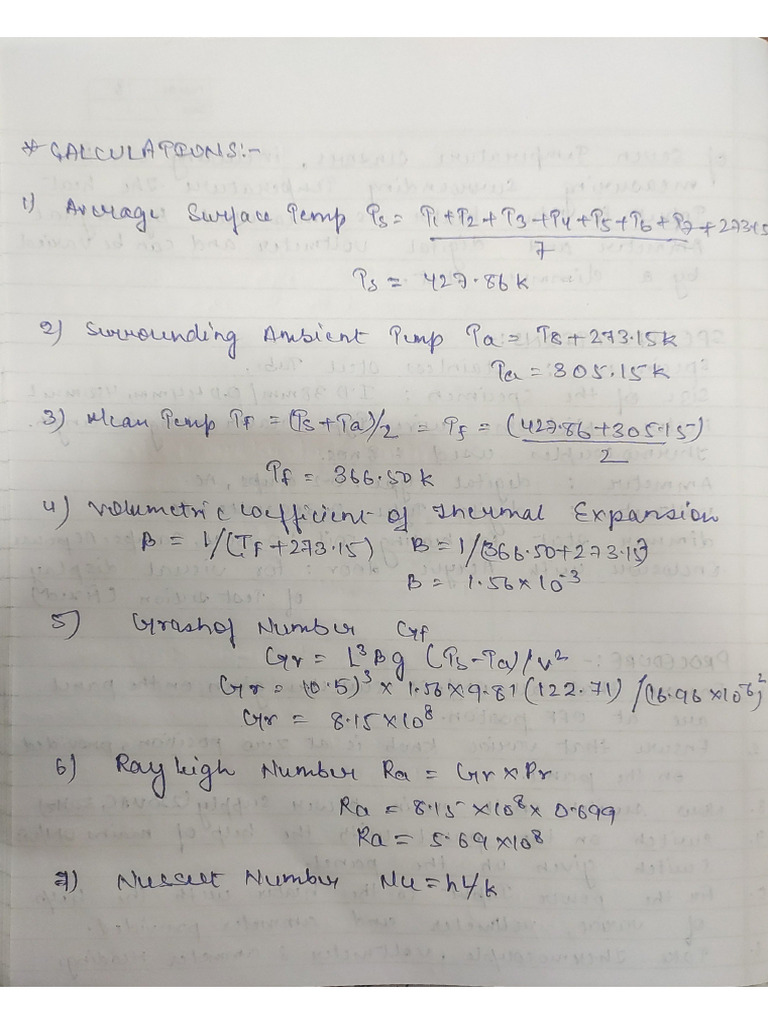 * CALCULATIONS:-
1) Average Surface Temp Ts = T1+T2+T3+T4+T5+T6+T7 + 273.15
7
Ts = 427.86 K
2) Surrounding Ambient Temp Ta = T8 + 273.15K
Ta = 305.15K
3) Mean Temp Tf = (Ts+Ta)/2 = Tf = (427.86+305.15)
2
Tf = 366.50 K
4) Volumetric Coefficient of Thermal Expansion
B = 1/(Tf+273.15) B = 1/(366.50+273.15)
B = 1.56×10-3
5) Grashof Number Grf
Gr = L³Bg (Ts-Ta)/v²
Gr = (0.5)³ × 1.56×9.81 (122.71) / (16.96×10-6)²
Gr = 8.15×10⁸
6) Raykigh Number Ra = Gr×Pr
Ra = 8.15 ×10⁸× 0.699
Ra = 5.69×10⁸
7) Nusselt Number Nu = hL/k